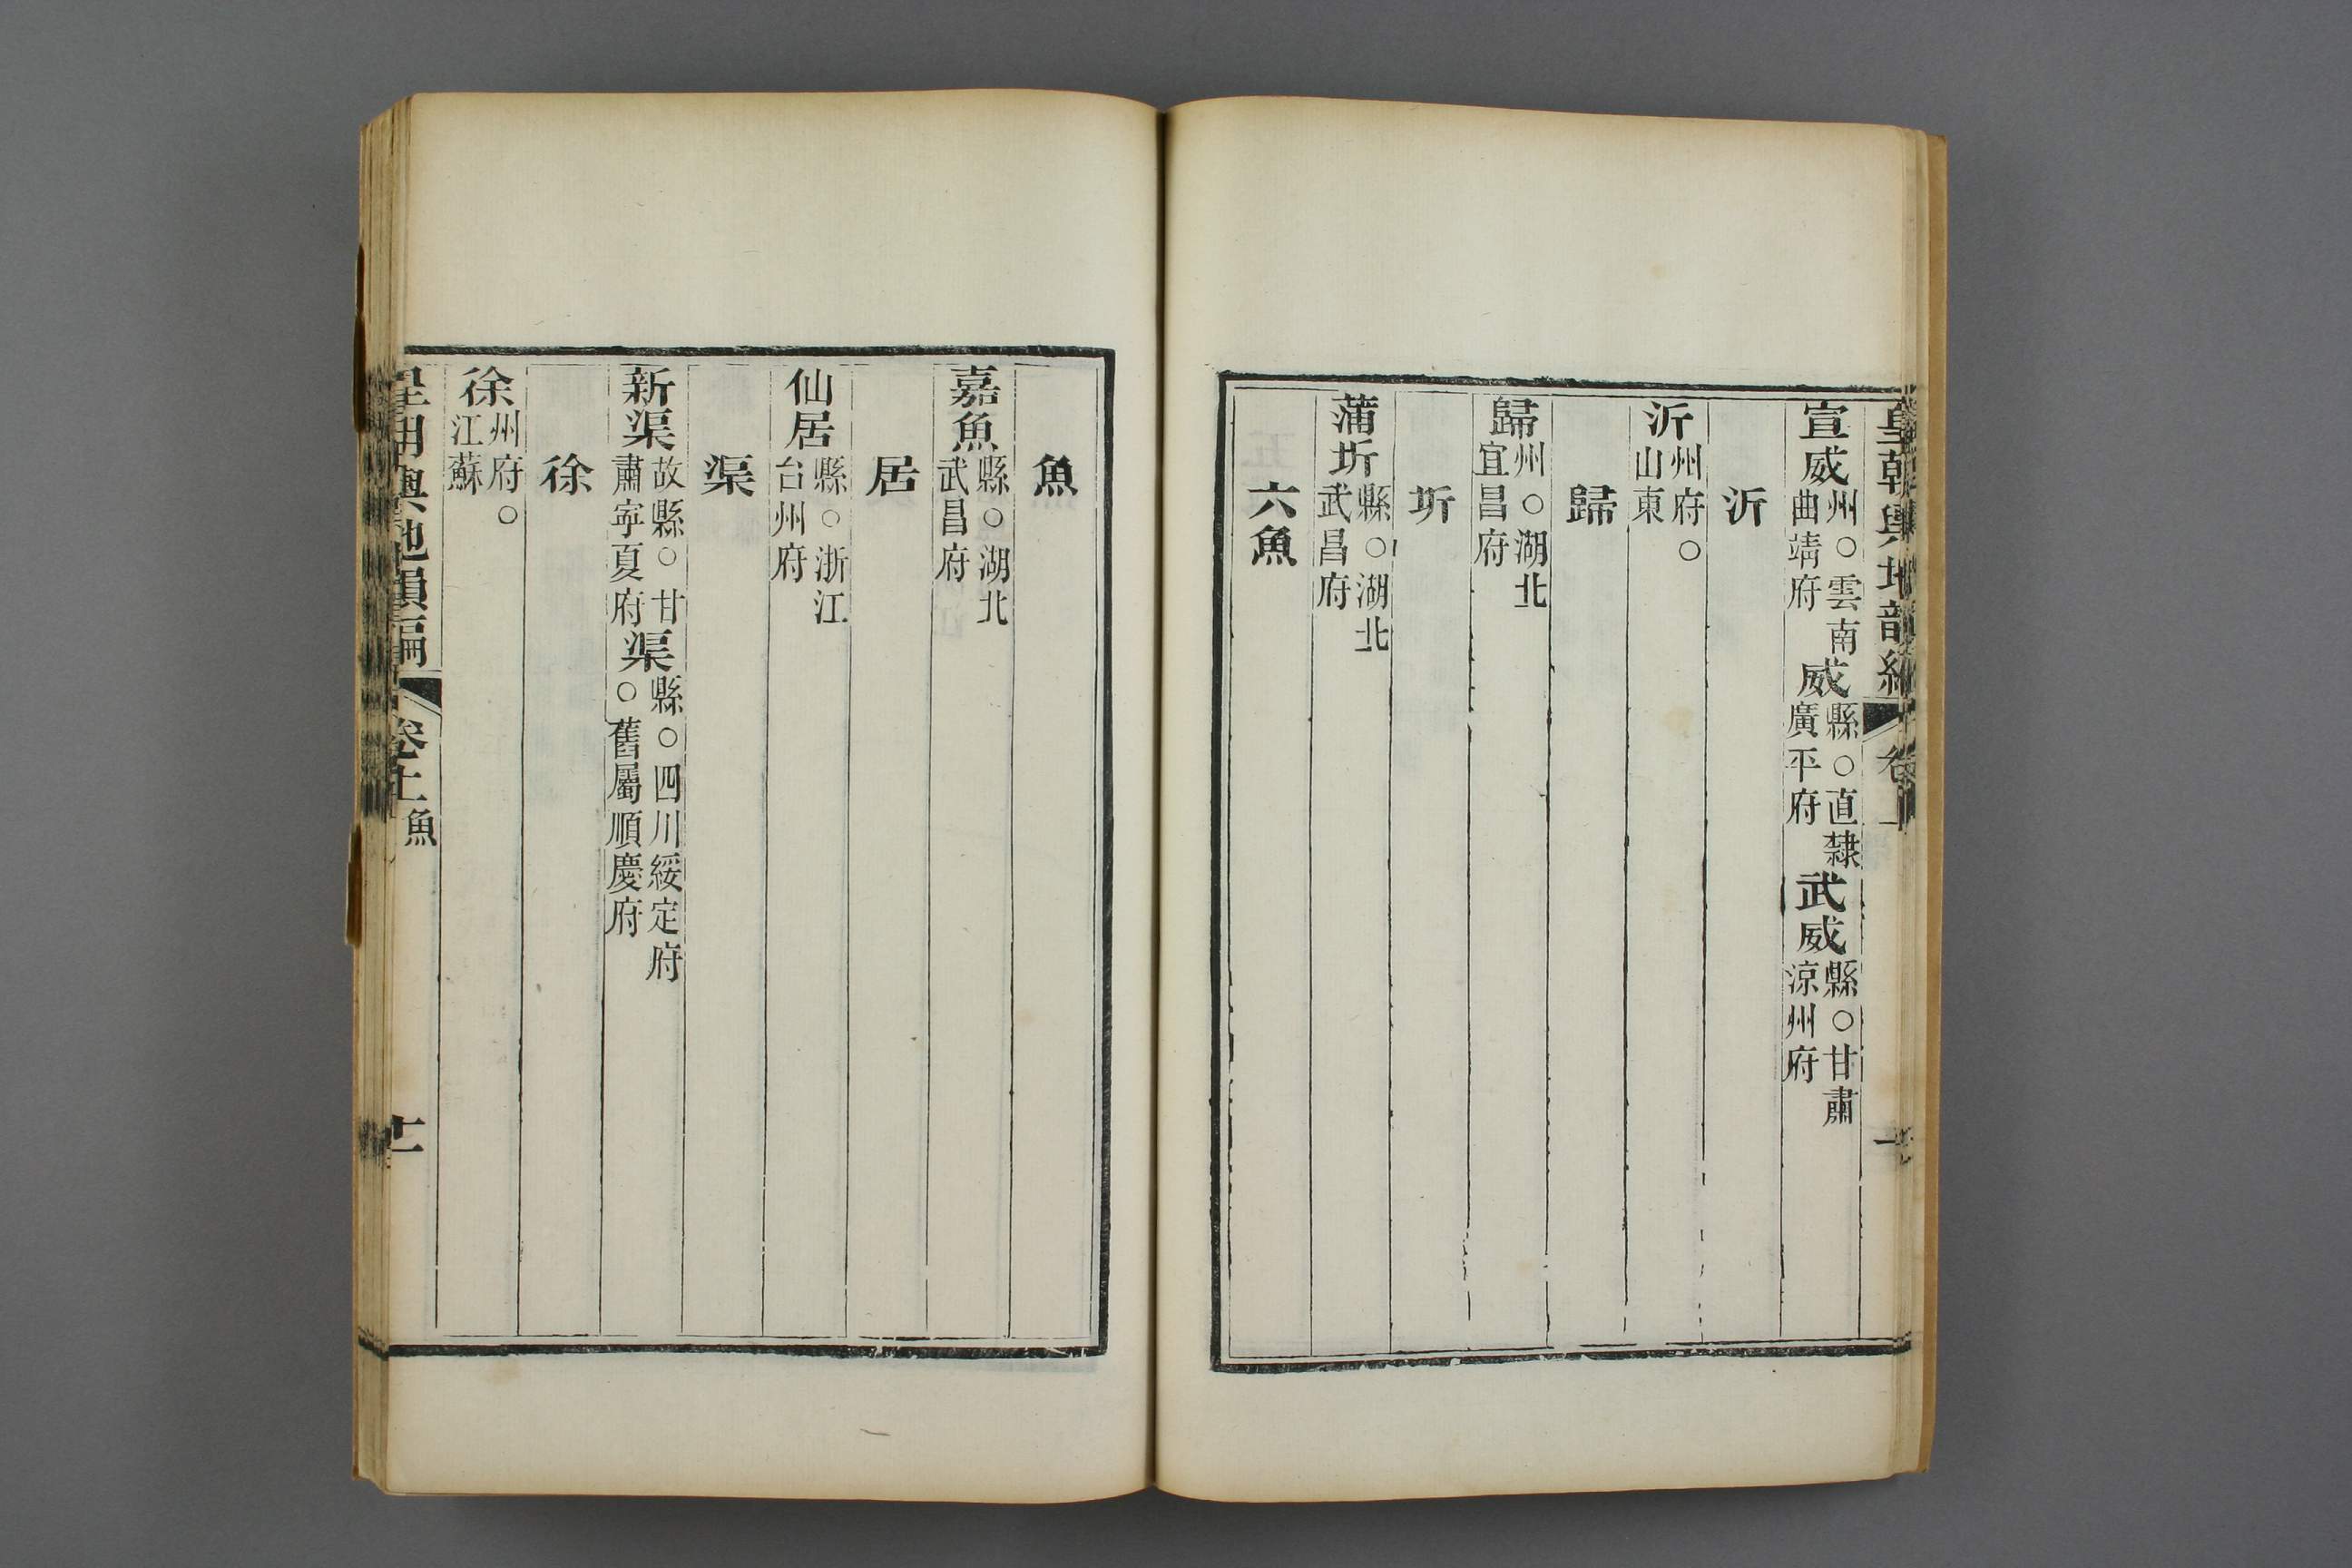 皇朝輿地韻編 卷上
宣威州○雲南曲靖府 威縣○直隸廣平府 武威縣○甘肅涼州府
沂
沂州府○山東
歸
歸州○湖北宜昌府
圻
蒲圻縣○湖北武昌府
六魚
魚
嘉魚縣○湖北武昌府
居
仙居縣○浙江台州府
渠
新渠故縣○甘肅寧夏府 渠縣○四川綏定府○舊屬順慶府
徐
徐州府○江蘇
皇朝輿地韻編 卷上 魚